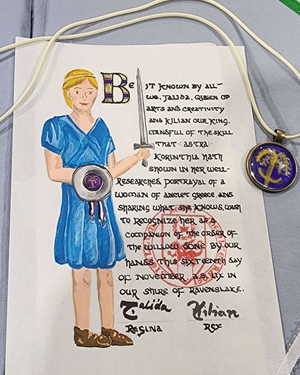 Be it known by all —
we, Talida, Queen of
arts and creativity
and Kilian our King,
mindful of the skill
that Astra
Korinthia hath
shown in her well-
researched portrayal of a
woman of ancient Greece and
sharing what she knows, wish
to recognize her as a
companion of the Order of
the Willow. Done by our
hands this sixteenth day
of November A.S. LIX in
our Shire of Ravenslake.
Talida Kilian
Regina Rex